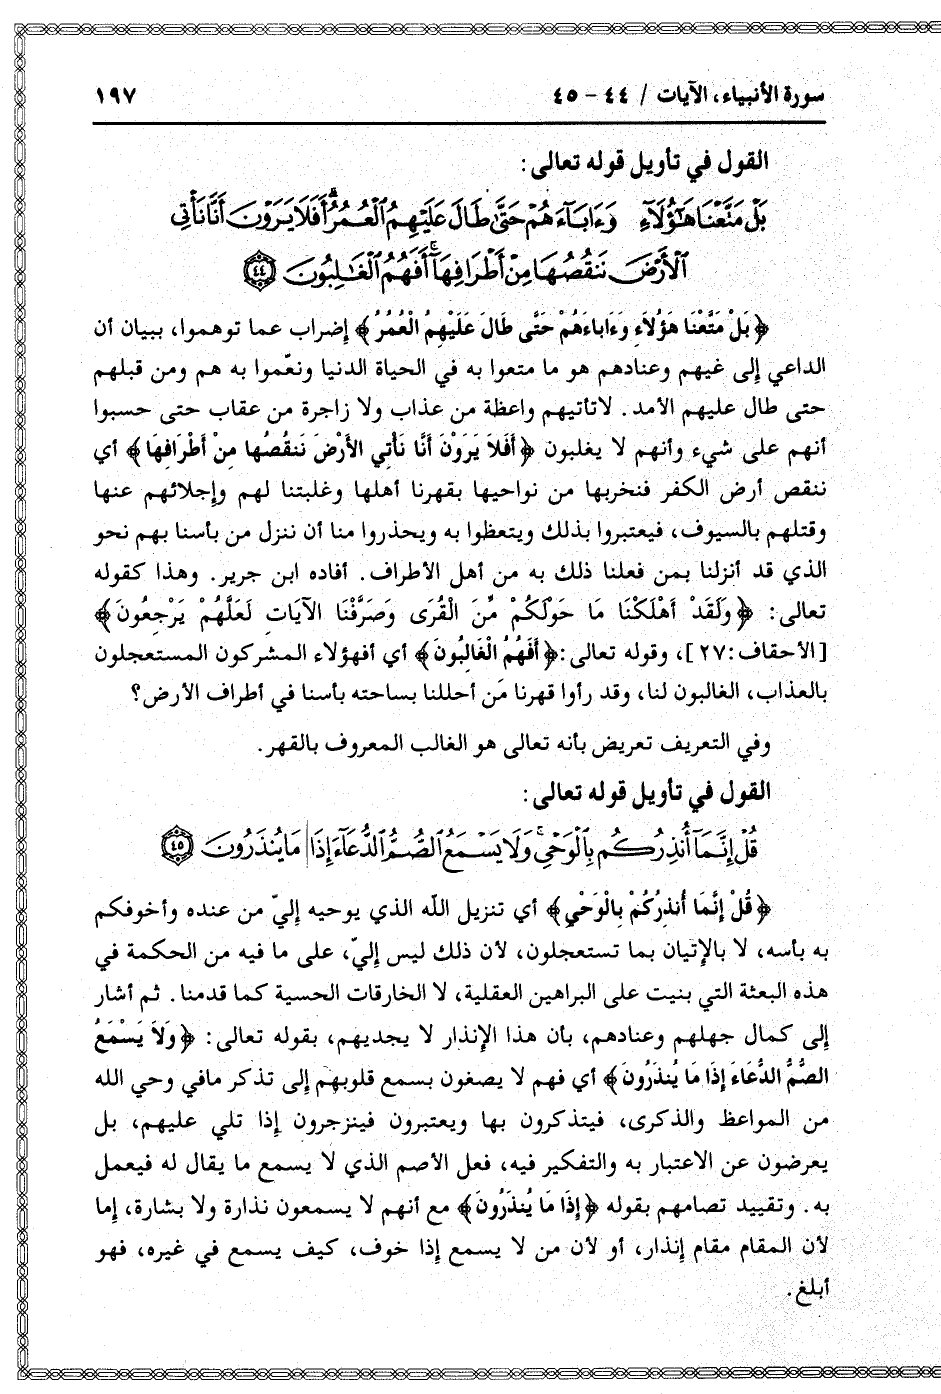 سورة الأنبياء، الآيات / ٤٤ - ٤٥ ١٩٧
القول في تأويل قوله تعالى:
بَلْ مَتَّعْنَا هَٰٓؤُلَآءِ وَءَابَآءَهُمْ حَتَّىٰ طَالَ عَلَيْهِمُ ٱلْعُمُرُ ۗ أَفَلَا يَرَوْنَ أَنَّا نَأْتِى
ٱلْأَرْضَ نَنقُصُهَا مِنْ أَطْرَافِهَآ ۚ أَفَهُمُ ٱلْغَٰلِبُونَ ٤٤
﴿بَلْ مَتَّعْنَا هَؤُلَاءِ وَءَابَاءَهُمْ حَتَّى طَالَ عَلَيْهِمُ الْعُمُرُ﴾ إضراب عما توهموا، ببيان أن
الداعي إلى غيهم وعنادهم هو ما متعوا به في الحياة الدنيا ونعّموا به هم ومن قبلهم
حتى طال عليهم الأمد. لاتأتيهم واعظة من عذاب ولا زاجرة من عقاب حتى حسبوا
أنهم على شيء وأنهم لا يغلبون ﴿أَفَلاَ يَرَوْنَ أَنَّا نَأْتِي الأَرْضَ نَنقُصُها مِنْ أَطْرَافِهَا﴾ أي
ننقص أرض الكفر فنخربها من نواحيها بقهرنا أهلها وغلبتنا لهم وإجلائهم عنها
وقتلهم بالسيوف، فيعتبروا بذلك ويتعظوا به ويحذروا منا أن ننزل من بأسنا بهم نحو
الذي قد أنزلنا بمن فعلنا ذلك به من أهل الأطراف. أفاده ابن جرير. وهذا كقوله
تعالى: ﴿وَلَقَدْ أَهْلَكْنَا مَا حَوْلَكُمْ مِّنَ الْقُرَى وَصَرَّفْنَا الآيَاتِ لَعَلَّهُمْ يَرْجِعُونَ﴾
[الأحقاف:٢٧]، وقوله تعالى:﴿أَفَهُمُ الْغَالِبُونَ﴾ أي أفهؤلاء المشركون المستعجلون
بالعذاب، الغالبون لنا، وقد رأوا قهرنا مَن أحللنا بساحته بأسنا في أطراف الأرض؟
وفي التعريف تعريض بأنه تعالى هو الغالب المعروف بالقهر.
القول في تأويل قوله تعالى:
قُلْ إِنَّمَآ أُنذِرُكُم بِٱلْوَحْىِ ۚ وَلَا يَسْمَعُ ٱلصُّمُّ ٱلدُّعَآءَ إِذَا مَا يُنذَرُونَ ٤٥
﴿قُلْ إِنَّمَا أُنذِرُكُمْ بِالْوَحْيِ﴾ أي تنزيل الله الذي يوحيه إليّ من عنده وأخوفكم
به بأسه، لا بالإتيان بما تستعجلون، لأن ذلك ليس إليّ، على ما فيه من الحكمة في
هذه البعثة التي بنيت على البراهين العقلية، لا الخارقات الحسية كما قدمنا. ثم أشار
إلى كمال جهلهم وعنادهم، بأن هذا الإنذار لا يجديهم، بقوله تعالى: ﴿وَلاَ يَسْمَعُ
الصُّمُّ الدُّعَاءَ إِذَا مَا يُنذَرُونَ﴾ أي فهم لا يصغون بسمع قلوبهم إلى تذكر مافي وحي الله
من المواعظ والذكرى، فيتذكرون بها ويعتبرون فينزجرون إذا تلي عليهم، بل
يعرضون عن الاعتبار به والتفكير فيه، فعل الأصم الذي لا يسمع ما يقال له فيعمل
به. وتقييد تصامهم بقوله ﴿إِذَا مَا يُنذَرُونَ﴾ مع أنهم لا يسمعون نذارة ولا بشارة، إما
لأن المقام مقام إنذار، أو لأن من لا يسمع إذا خوف، كيف يسمع في غيره، فهو
أبلغ.